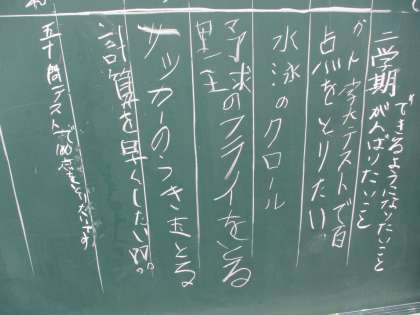 できるようになりたいこと
二学期 がんばりたいこと
かん字大テストで百
点をとりたい
水泳のクロール
野球のフライをとる
サッカーのうき玉とる
計算を早くしたいです。
五十問テストで100点をとりたいです。